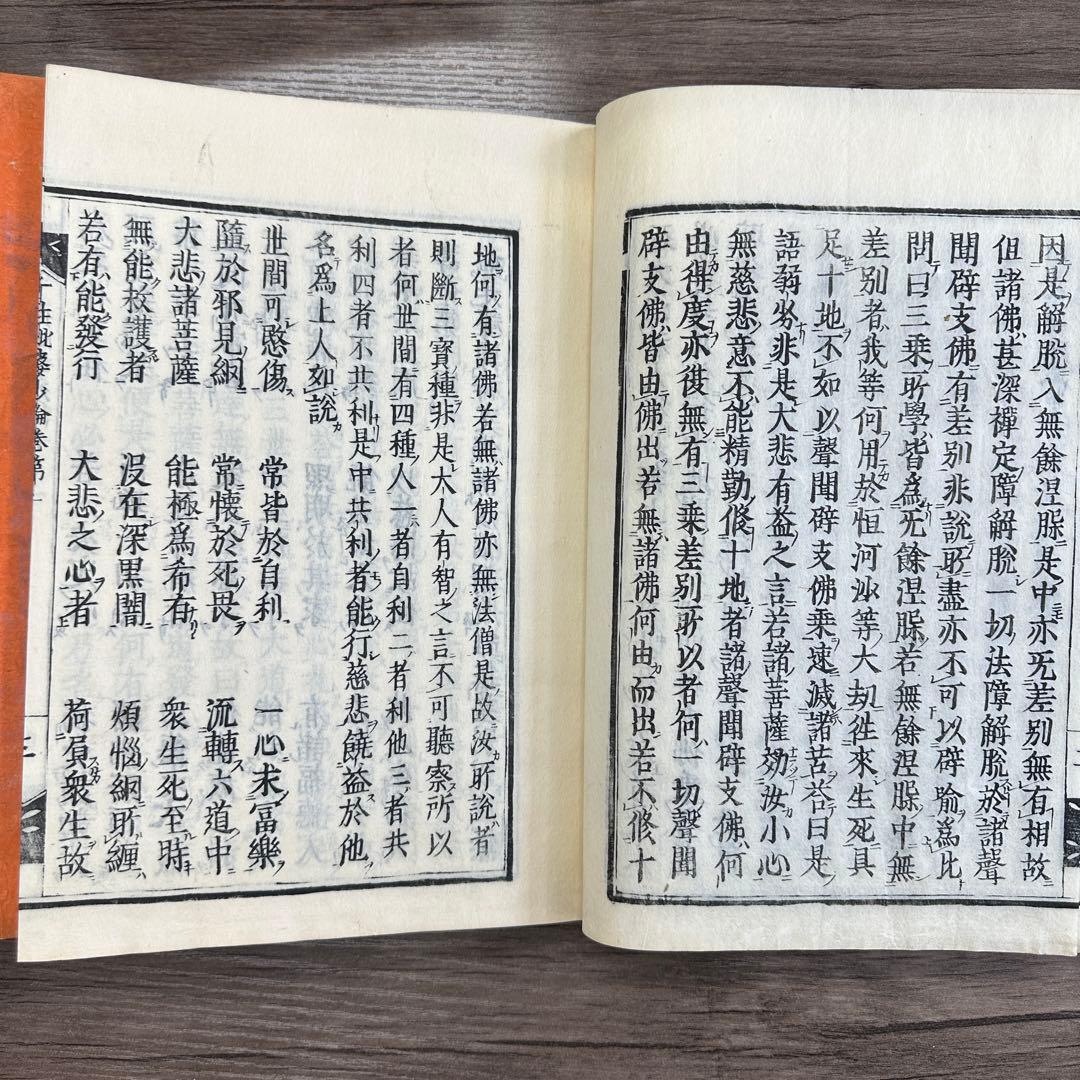 因是解脫入無餘涅槃是中亦无差別無有相故
但諸佛甚深禪定障解脫一切法障解脫於諸聲
聞辟支佛有差別非說所盡亦不可以辟喻為比
問曰三乘所學皆為无餘涅槃若無餘涅槃中無
差別者我等何用於恒河沙等大劫徃來生死具
足十地不如以聲聞辟支佛乘速滅諸苦荅曰是
語弱劣非是大悲有益之言若諸菩薩効汝小心
無慈悲意不能精勤修十地者諸聲聞辟支佛何
由得度亦復無有三乘差別所以者何一切聲聞
辟支佛皆由佛出若無諸佛何由而出若不修十
地何有諸佛若無諸佛亦無法僧是故汝所說者
則斷三寶種非是大人有智之言不可聽察所以
者何世間有四種人一者自利二者利他三者共
利四者不共利是中共利者能行慈悲饒益於他
名為上人如說
世間可愍傷 常皆於自利 一心求富樂
隨於邪見網 常懷於死畏 流轉六道中
大悲諸菩薩 能極為希有 衆生死至時
無能救護者 沒在深黑闇 煩惱網所纏
若有能發行 大悲之心者 荷負衆生故
十住毗婆沙論卷第一
三